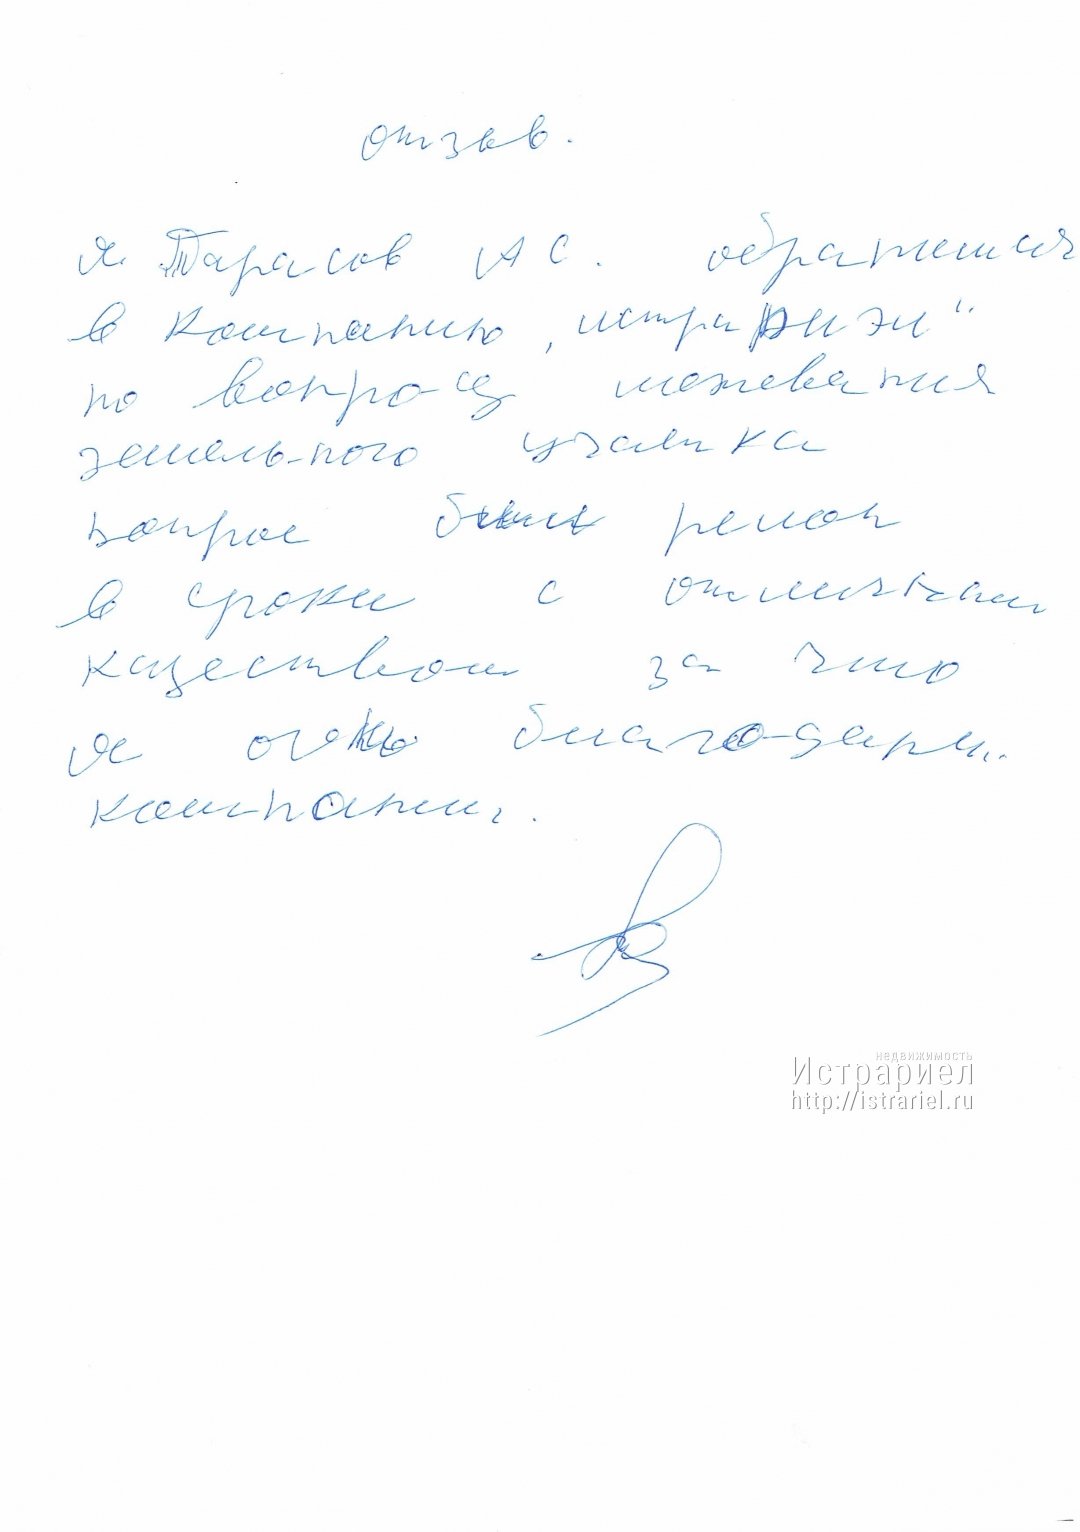 отзыв.
я Тарасов А С. обратился
в компанию "истра РИЭЛ"
по вопросу межевания
земельного участка
вопрос был решон
в сроки с отличным
качеством за что
я очень благодарен
компании.
недвижимость
Истрариел
http://istrariel.ru